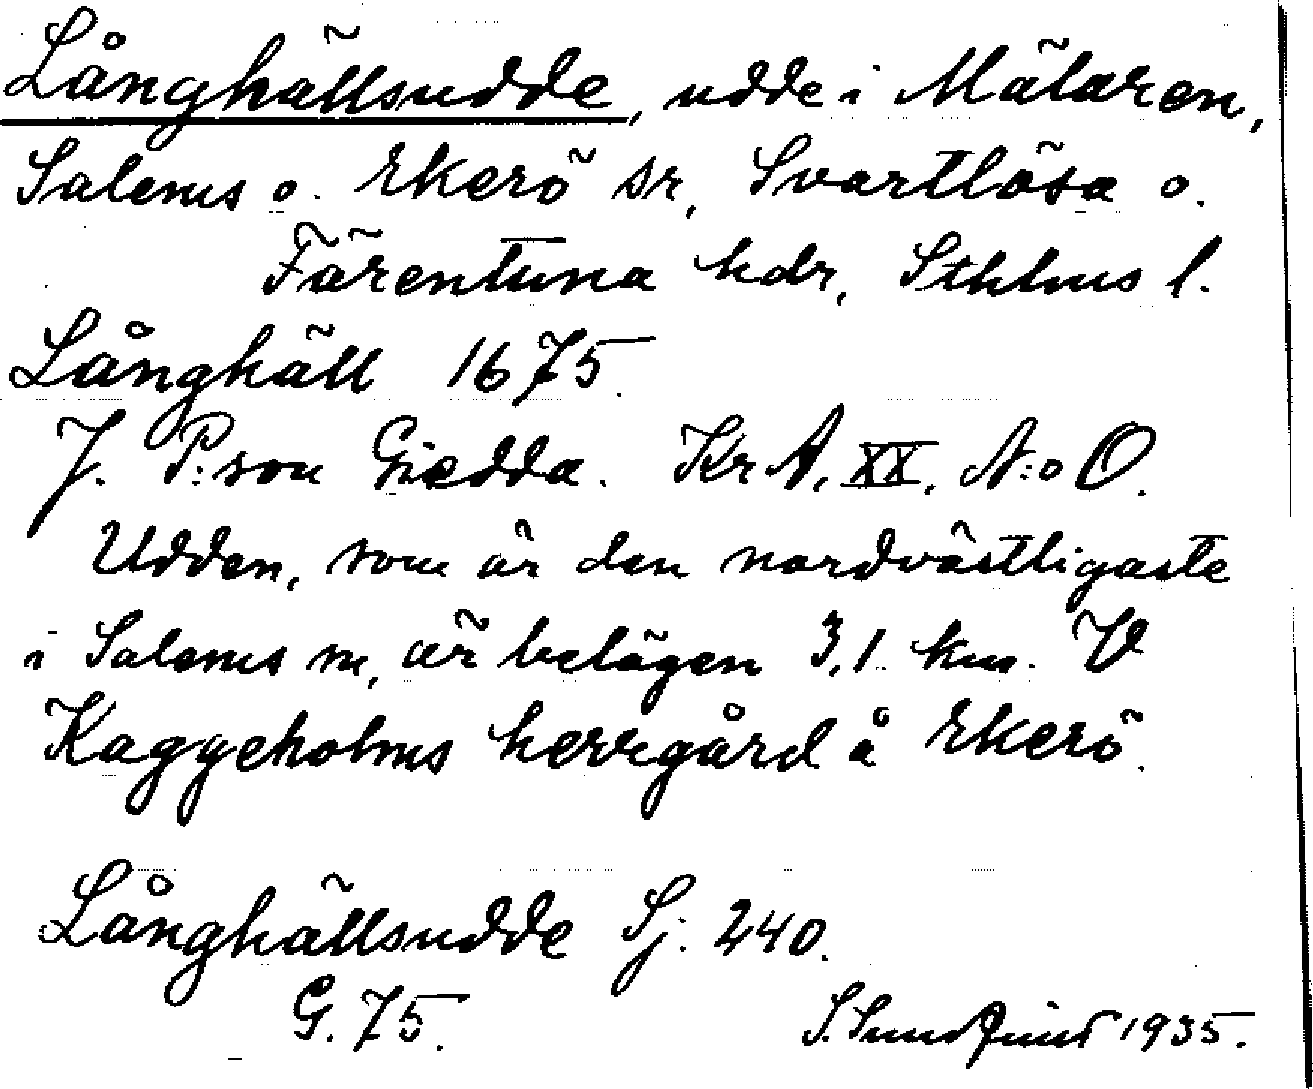 Långhällsudde, udde i Mälaren,
Salems o. Ekerö sr, Svartlösa o.
Färentuna hdr, Sthlms l.
Långhäll 1675.
J. P:son Giedda. KrA, XX, N:o O.
Udden, som är den nordvästligaste
i Salems sn, är belägen 3,1 km. V
Kaggeholms herrgård å Ekerö.
Långhällsudde Sj. 240.
G. 75.
1935.